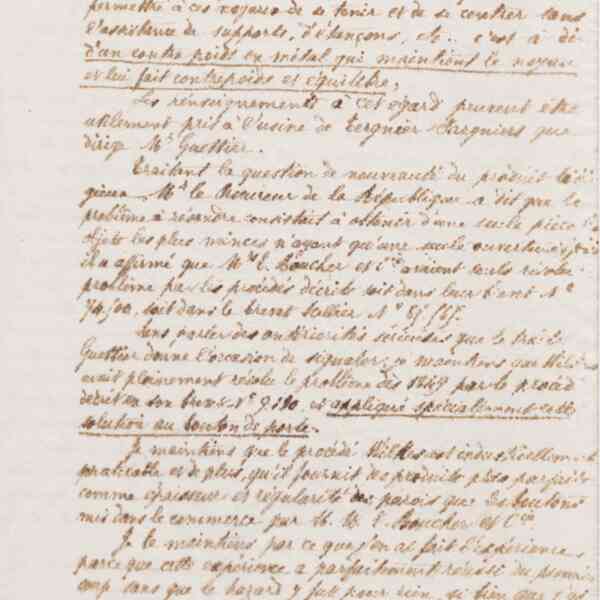 permettre à ces noyaux de se tenir et de se centrer sans
l'assistance de supports, d'étançons, etc. c'est à di
d'un contre poids en métal qui maintient le noyau
et lui fait contrepoids et équilibre,
Les renseignements à cet égard peuvent être
utilement pris à l'usine de Tergnier Fargniers que
dirige Mr Guettier.
Traitant la question de nouveauté du produit
Mr le Procureur de la République a dit que le
problème à résoudre consistait à obtenir d'une seule pièce
objets les plus minces n'ayant qu'une seule ouverture
il a affirmé que Mrs E. Boucher et Cie avaient seuls résolu
problème par les procédés décrits soit dans leur brevet No
soit dans le brevet No
Sans parler des antériorités sérieuses que le traité
Guettier donne l'occasion de signaler, je maintiens que Wilkes
avait pleinement résolu le problème dès 1849 par le procédé
décrit en son brevet No 9.120, et appliqué spécialement cette
solution au bouton de porte.
Je maintiens que le procédé Wilkes est industriellement
praticable et de plus, qu'il fournit des produits plus parfaits
comme épaisseur et régularité des parois que les boutons
mis dans le commerce par M. M. E. Boucher et Cie.
Je le maintiens par ce que j'en ai fait l'expérience
parce que cette expérience a parfaitement réussi du premier
coup sans que le hazard y fut pour rien, si bien que